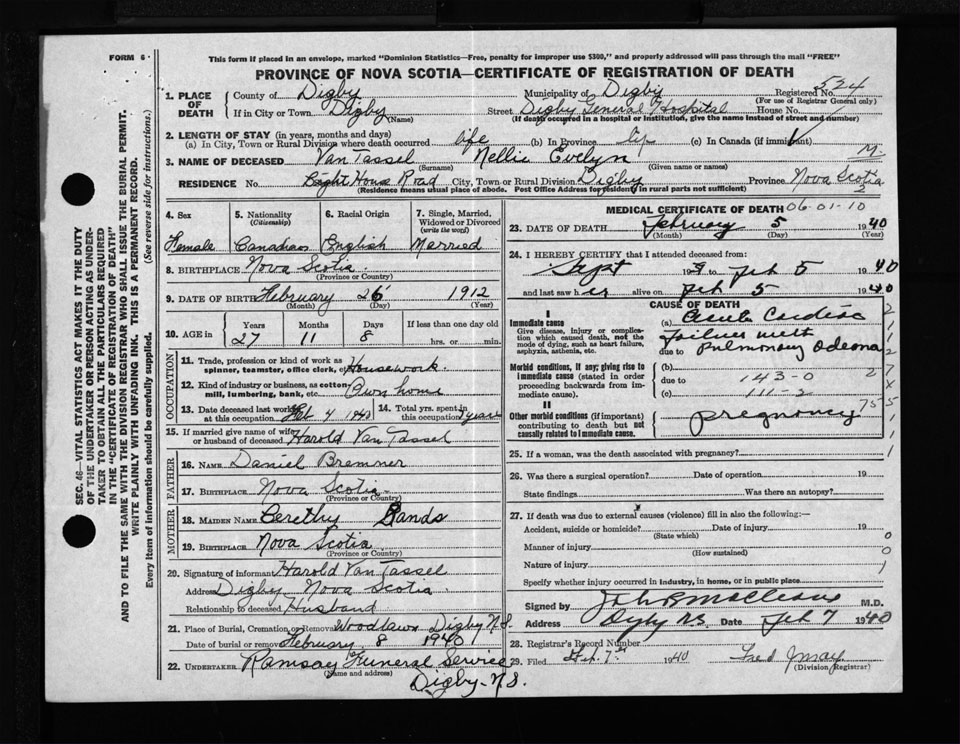 FORM 6
This form if placed in an envelope, marked "Dominion Statistics—Free, penalty for improper use $300," and properly addressed will pass through the mail "FREE"
PROVINCE OF NOVA SCOTIA—CERTIFICATE OF REGISTRATION OF DEATH
SEC. 46—VITAL STATISTICS ACT MAKES IT THE DUTY
OF THE UNDERTAKER OR PERSON ACTING AS UNDER-
TAKER TO OBTAIN ALL THE PARTICULARS REQUIRED
IN THE "CERTIFICATE OF REGISTRATION OF DEATH"
AND TO FILE THE SAME WITH THE DIVISION REGISTRAR WHO SHALL ISSUE THE BURIAL PERMIT.
WRITE PLAINLY WITH UNFADING INK. THIS IS A PERMANENT RECORD.
Every item of information should be carefully supplied. (See reverse side for instructions.)
1. PLACE OF DEATH
County of Digby Municipality of Digby Registered No. 524
(For use of Registrar General only)
If in City or Town Digby (Name) Street Digby General Hospital House No.
(If death occurred in a hospital or institution, give the name instead of street and number)
2. LENGTH OF STAY (in years, months and days)
(a) In City, Town or Rural Division where death occurred life (b) In Province life (c) In Canada (if immigrant)
M
3. NAME OF DECEASED Van Tassel Nellie Evelyn
(Surname) (Given name or names)
RESIDENCE No. Light House Road City, Town or Rural Division Digby Province Nova Scotia
(Residence means usual place of abode. Post Office Address for residency in rural parts not sufficient) 2
4. Sex 5. Nationality (Citizenship) 6. Racial Origin 7. Single, Married, Widowed or Divorced (write the word)
Female Canadian English Married
8. BIRTHPLACE Nova Scotia
(Province or Country)
9. DATE OF BIRTH February 26 1912
(Month) (Day) (Year)
10. AGE in Years Months Days If less than one day old
27 11 8 hrs. or min.
OCCUPATION
11. Trade, profession or kind of work as spinner, teamster, office clerk, etc. Housework.
12. Kind of industry or business, as cotton-mill, lumbering, bank, etc. Own home
13. Date deceased last worked at this occupation Feb 4 1940 14. Total yrs. spent in this occupation years
15. If married give name of wife or husband of deceased Harold Van Tassel
FATHER
16. NAME Daniel Bremner
17. BIRTHPLACE Nova Scotia
(Province or Country)
MOTHER
18. MAIDEN NAME Rands
19. BIRTHPLACE Nova Scotia
(Province or Country)
20. Signature of informant Harold Van Tassel
Address Digby Nova Scotia
Relationship to deceased Husband
21. Place of Burial, Cremation or Removal Woodlawn Digby N.S.
Date of burial or removal February 8 1940
22. UNDERTAKER Ramsay Funeral Service
(Name and address)
Digby - N.S.
MEDICAL CERTIFICATE OF DEATH 06-01-10
23. DATE OF DEATH February 5 1940
(Month) (Day) (Year)
24. I HEREBY CERTIFY that I attended deceased from:
Sept 19 to Feb 5 1940
and last saw her alive on Feb 5 1940
CAUSE OF DEATH
I
Immediate cause (a) Acute Cardiac
Give disease, injury or complica-
tion which caused death, not the
mode of dying, such as heart failure,
asphyxia, asthenia, etc.
Failure with
due to Pulmonary Odeona
Morbid conditions, if any; giving rise to
immediate cause (stated in order
proceeding backwards from im-
mediate cause).
(b)
due to 143-0
(c) 111-2
II
Other morbid conditions (if important)
contributing to death but not
causally related to immediate cause.
pregnancy
25. If a woman, was the death associated with pregnancy?
26. Was there a surgical operation? Date of operation 19
State findings Was there an autopsy?
27. If death was due to external causes (violence) fill in also the following:—
Accident, suicide or homicide? Date of injury 19
(State which) 0
Manner of injury 0
(How sustained)
Nature of injury 1
Specify whether injury occurred in industry, in home, or in public place
Signed by M.D.
Address Digby N.S. Date Feb 7 1940
28. Registrar's Record Number
29. Filed Feb. 7th 1940 Fred J May
(Division Registrar)